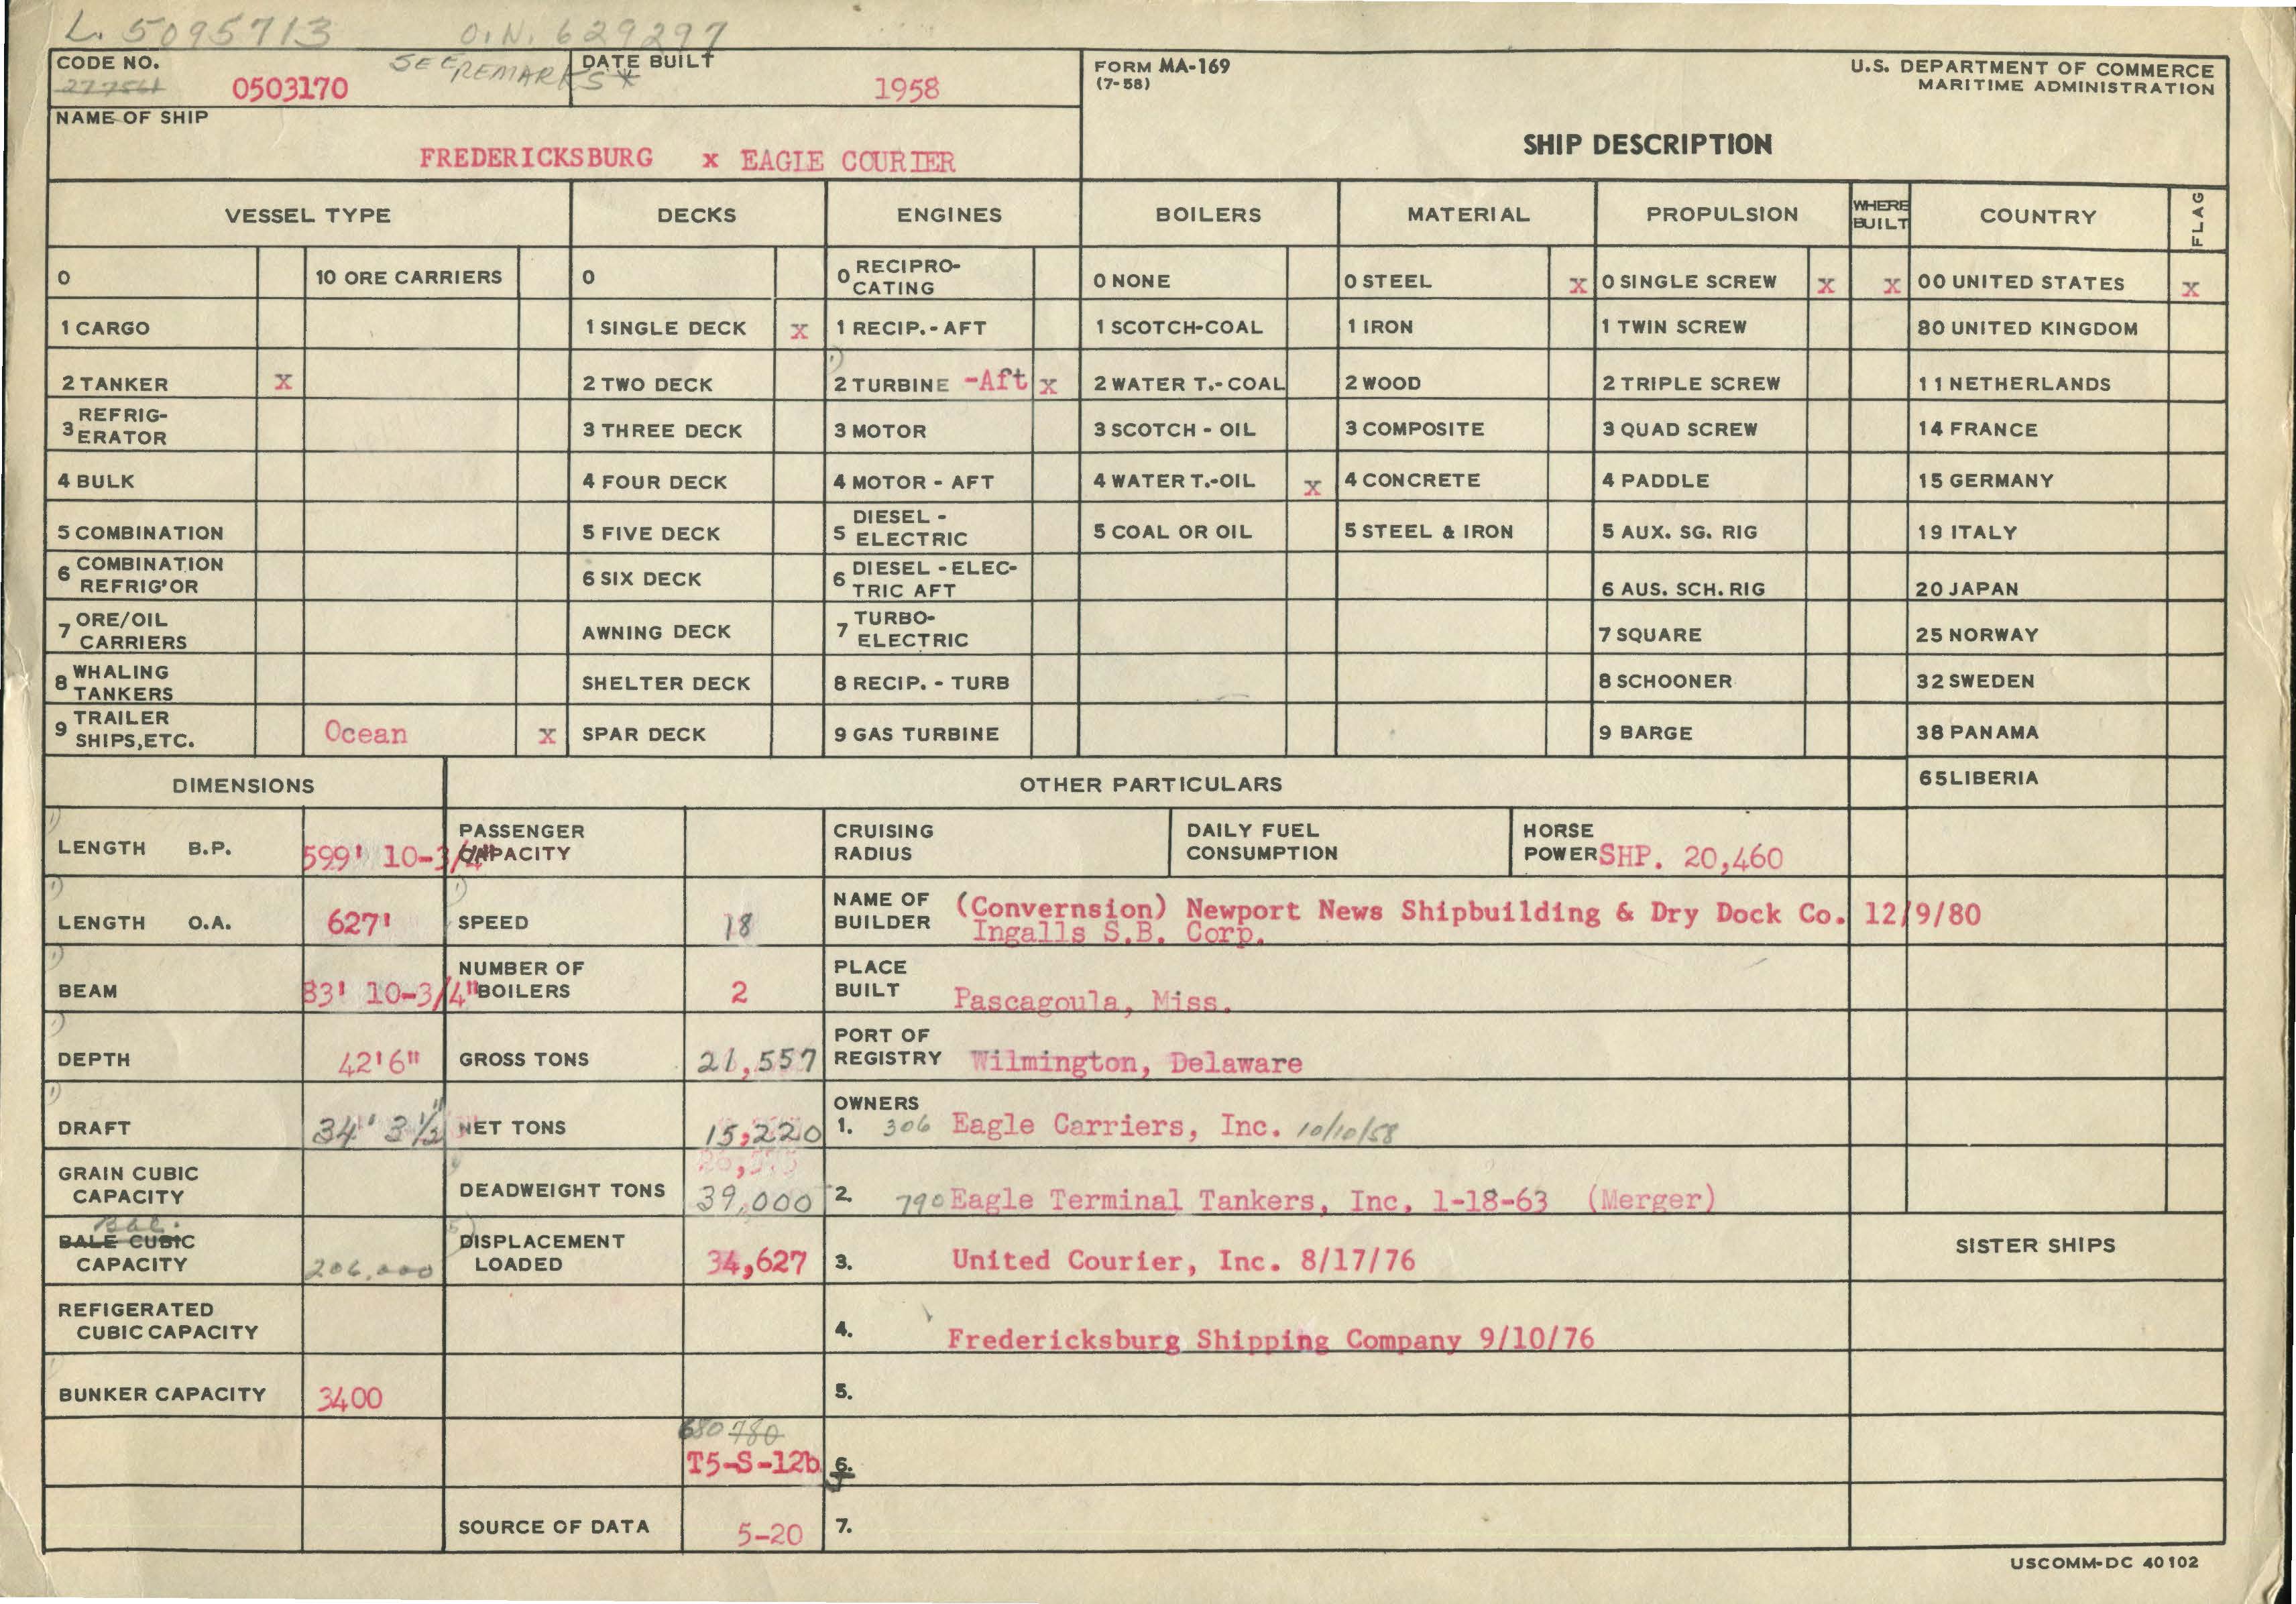 L. 5095713 O.N. 629297
SEE REMARKS*
CODE NO. DATE BUILT
277561 0503170 1958
FORM MA-169
(7-58)
U.S. DEPARTMENT OF COMMERCE
MARITIME ADMINISTRATION
NAME OF SHIP
FREDERICKSBURG x EAGLE COURIER
SHIP DESCRIPTION
VESSEL TYPE DECKS ENGINES BOILERS MATERIAL PROPULSION WHERE BUILT COUNTRY FLAG
0 10 ORE CARRIERS 0 0 RECIPRO-CATING 0 NONE 0 STEEL x 0 SINGLE SCREW x x 00 UNITED STATES x
1 CARGO 1 SINGLE DECK x 1 RECIP.- AFT 1 SCOTCH-COAL 1 IRON 1 TWIN SCREW 80 UNITED KINGDOM
2 TANKER x 2 TWO DECK 2 TURBINE -Aft x 2 WATER T.- COAL 2 WOOD 2 TRIPLE SCREW 11 NETHERLANDS
3 REFRIG-ERATOR 3 THREE DECK 3 MOTOR 3 SCOTCH - OIL 3 COMPOSITE 3 QUAD SCREW 14 FRANCE
4 BULK 4 FOUR DECK 4 MOTOR - AFT 4 WATER T.-OIL x 4 CONCRETE 4 PADDLE 15 GERMANY
5 COMBINATION 5 FIVE DECK 5 DIESEL - ELECTRIC 5 COAL OR OIL 5 STEEL & IRON 5 AUX. SG. RIG 19 ITALY
6 COMBINATION REFRIG'OR 6 SIX DECK 6 DIESEL - ELEC-TRIC AFT 6 AUS. SCH. RIG 20 JAPAN
7 ORE/OIL CARRIERS AWNING DECK 7 TURBO-ELECTRIC 7 SQUARE 25 NORWAY
8 WHALING TANKERS SHELTER DECK 8 RECIP. - TURB 8 SCHOONER 32 SWEDEN
9 TRAILER SHIPS,ETC. Ocean x SPAR DECK 9 GAS TURBINE 9 BARGE 38 PANAMA
DIMENSIONS OTHER PARTICULARS 65 LIBERIA
LENGTH B.P. 599' 10-3/4" PASSENGER CAPACITY CRUISING RADIUS DAILY FUEL CONSUMPTION HORSE POWER SHP. 20,460
LENGTH O.A. 627' SPEED 18 NAME OF BUILDER (Convernsion) Newport News Shipbuilding & Dry Dock Co. 12/9/80
Ingalls S.B. Corp.
BEAM 83' 10-3/4" NUMBER OF BOILERS 2 PLACE BUILT Pascagoula, Miss.
DEPTH 42'6" GROSS TONS 21,557 PORT OF REGISTRY Wilmington, Delaware
DRAFT 34' 3½" NET TONS 15,220 OWNERS 1. 306 Eagle Carriers, Inc. 10/10/58
GRAIN CUBIC CAPACITY DEADWEIGHT TONS 39,000 2. 790 Eagle Terminal Tankers, Inc. 1-18-63 (Merger)
Bbl.
BALE CUBIC CAPACITY 206,000 DISPLACEMENT LOADED 34,627 3. United Courier, Inc. 8/17/76 SISTER SHIPS
REFIGERATED CUBIC CAPACITY 4. Fredericksburg Shipping Company 9/10/76
BUNKER CAPACITY 3400 5.
680 780
T5-S-12b 6.
SOURCE OF DATA 5-20 7.
USCOMM-DC 40102